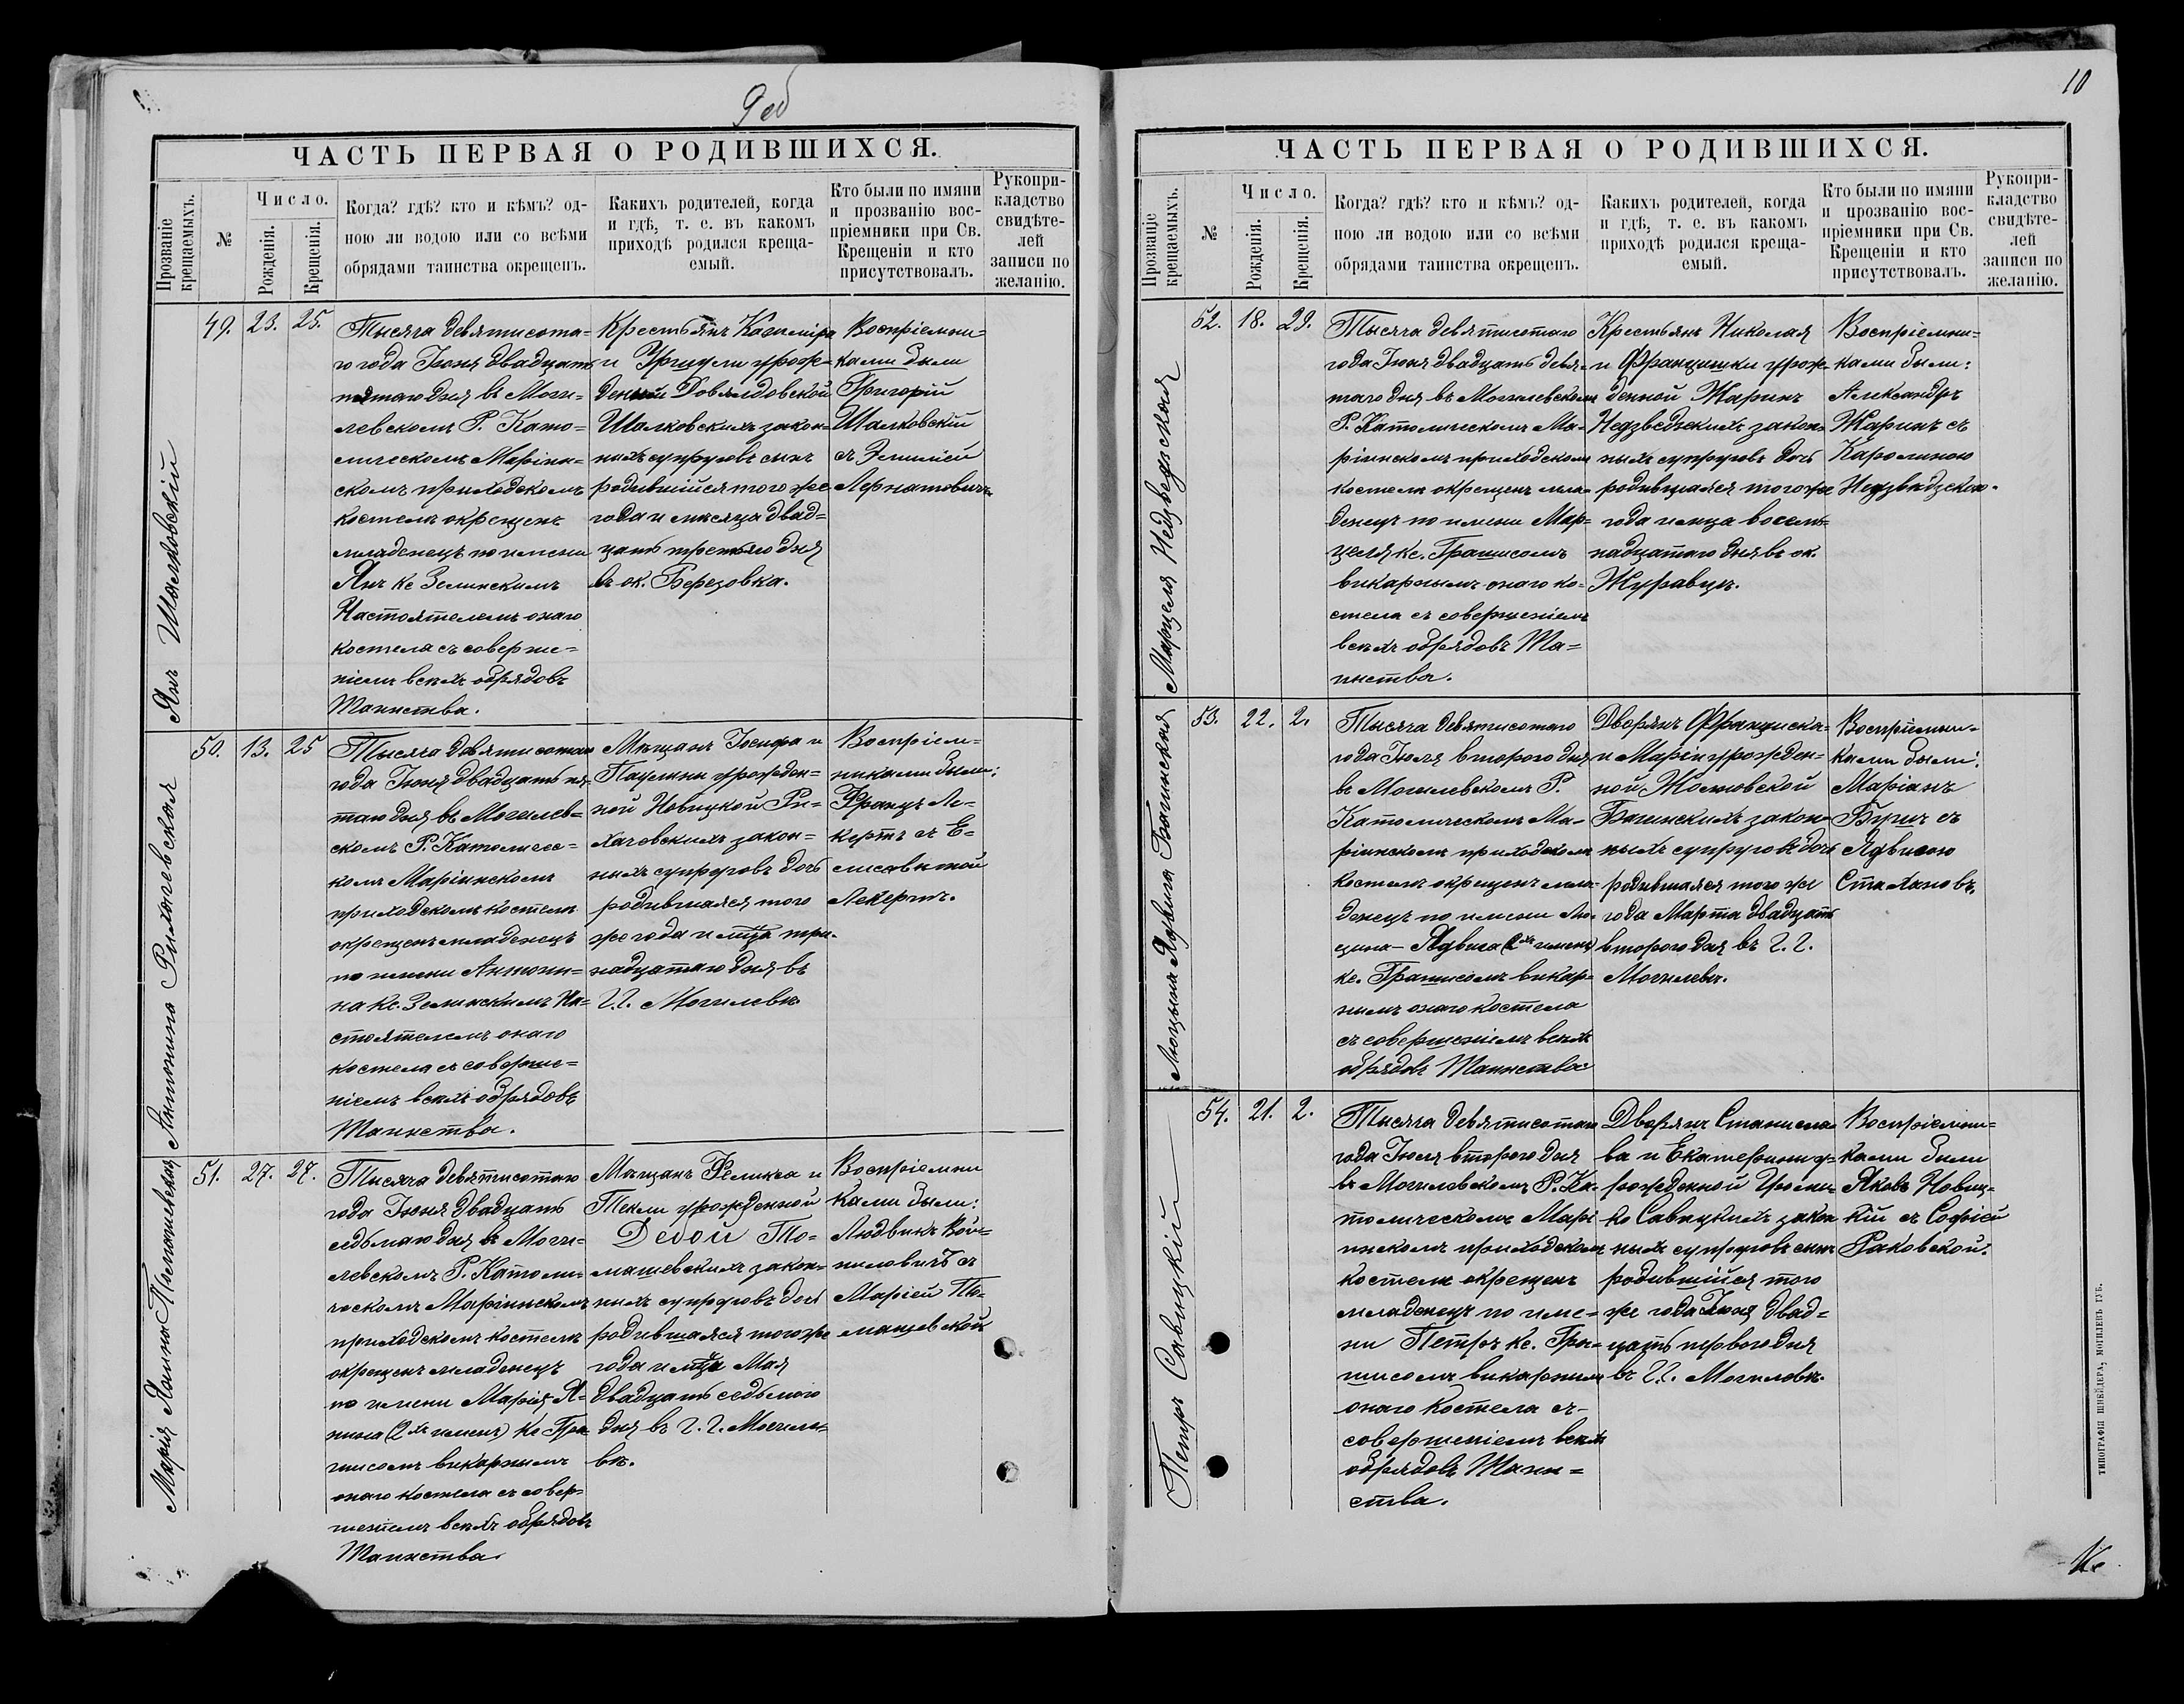 9 об
ЧАСТЬ ПЕРВАЯ О РОДИВШИХСЯ.
Прозваніе крещаемыхъ.
№
Число.
Рожденія.
Крещенія.
Когда? гдѣ? кто и кѣмъ? од-
ною ли водою или со всѣми
обрядами таинства окрещенъ.
Какихъ родителей, когда
и гдѣ, т. е. въ какомъ
приходѣ родился креща-
емый.
Кто были по имяни
и прозванію вос-
пріемники при Св.
Крещеніи и кто
присутствовалъ.
Рукопри-
кладство
свидѣте-
лей
записи по
желанію.
Янъ Шалковскій
49. 23. 25.
Тысяча девятисота-
го года Іюня двадцать
пятаго дня въ Моги-
левскомъ Р. Като-
лическомъ Маріин-
скомъ приходскомъ
костелѣ окрещенъ
младенецъ по имени
Янъ кс Зелинскимъ
Настоятелемъ онаго
костела съ соверше-
ніемъ всѣхъ обрядовъ
Таинства.
Крестьянъ Казиміра
и Уршули урож-
денной Довялдовской
Шалковскихъ закон-
ныхъ супруговъ сынъ
родившійся того же
года и мѣсяца двад-
цать третьяго дня
въ ок. Березовка.
Воспріемни-
ками были
Григорій
Шалковскій
съ Эмиліей
50. 13. 25
Антонина Рихачевская
Тысяча девятисотаго
года Іюня двадцать пя-
таго дня въ Могилев-
скомъ Р. Католичес-
комъ Маріинскомъ
приходскомъ костелѣ
окрещенъ младенецъ
по имени Антони-
на Кс. Зелинскимъ На-
стоятелемъ онаго
костела съ соверше-
ніемъ всѣхъ обрядовъ
Таинства.
Мѣщанъ Іосифа и
Паулины урожден-
ной Новицкой Ри-
хачовскихъ закон-
ныхъ супруговъ дочь
родившаяся того
же года и мца три-
надцатаго дня въ
Г. Г. Могилевѣ
Воспріем-
никами были:
Францъ Ле-
кертъ съ Е-
лисаветой
Лекертъ.
51. 27. 27.
Марія Янина
Тысяча девятисотаго
года Іюня двадцать
седьмаго дня въ Моги-
левскомъ Р. Католи-
ческомъ Маріинскомъ
приходскомъ костелѣ
окрещенъ младенецъ
по имени Марія-Я-
нина (2хъ именъ) Кс
викарнымъ
онаго костела съ совер-
шеніемъ всѣхъ обрядовъ
Таинства.
Мѣщанъ Феликса и
Текли урожденной
законн-
ныхъ супруговъ дочь
родившаяся того же
года и мца Мая
двадцать седьмого
дня въ Г. Г. Могиле-
вѣ.
Воспріемни
ками были:
Людвикъ Вой-
ниловичъ съ
Маріей
10
ЧАСТЬ ПЕРВАЯ О РОДИВШИХСЯ.
Прозваніе крещаемыхъ.
№
Число.
Рожденія.
Крещенія.
Когда? гдѣ? кто и кѣмъ? од-
ною ли водою или со всѣми
обрядами таинства окрещенъ.
Какихъ родителей, когда
и гдѣ, т. е. въ какомъ
приходѣ родился креща-
емый.
Кто были по имяни
и прозванію вос-
пріемники при Св.
Крещеніи и кто
присутствовалъ.
Рукопри-
кладство
свидѣте-
лей
записи по
желанію.
Марцеля Недзведзская
52. 18. 29.
Тысяча девятисотаго
года Іюня двадцать девя-
таго дня въ Могилевскомъ
Р. Католическомъ Ма-
ріинскомъ приходскомъ
костелѣ окрещенъ мла-
денецъ по имени Мар-
целя кс.
викарнымъ онаго ко-
стела съ совершеніемъ
всѣхъ обрядовъ Та-
инства.
Крестьянъ Николая
и Францишки урож-
денной Жаринъ
Недзведзскихъ закон-
ныхъ супруговъ дочь
родившаяся того же
года и мца восем-
надцатаго дня въ ок.
Журавцъ.
Воспріемни-
ками были:
Александръ
Жаринъ съ
Каролиною
Недзведзскою.
53. 22. 2.
Люцына Ядвига Багинская
Тысяча девятисотаго
года Іюля второго дня
въ Могилевскомъ Р.
Католическомъ Ма-
ріинскомъ приходскомъ
костелѣ окрещенъ мла-
денецъ по имени Лю-
цина-Ядвига (2хъ именъ)
кс. викар-
нымъ онаго костела
съ совершеніемъ всѣхъ
обрядовъ Таинства
Дворянъ Франциска-
и Маріи урожден-
ной
Багинскихъ закон-
ныхъ супруговъ дочь
родившаяся того же
года Марта двадцать
второго дня въ Г. Г.
Могилевѣ.
Воспріемни-
ками были:
Маріанъ
съ
Ядвигою
54. 21. 2.
Петръ Савицкій
Тысяча девятисотаго
года Іюля второго дня
въ Могилевскомъ Р. Ка-
толическомъ Марі
инскомъ приходскомъ
костелѣ окрещенъ
младенецъ по име-
ни Петръ кс.
викарнымъ
онаго костела съ-
совершеніемъ всѣхъ
обрядовъ Таин-
ства.
Дворянъ Станисла-
ва и Екатерины у-
рожденной
Савицкихъ закон
ныхъ супруговъ сынъ
родившійся того
же года Іюня двад-
цать перваго дня
въ Г. Г. Могилевѣ.
Воспріемни-
ками были
Яковъ Новиц-
кій съ Софіей
Раковской.
ТИПОГРАФІЯ ШНЕЙДЕРА, МОГИЛЕВЪ ГУБ.